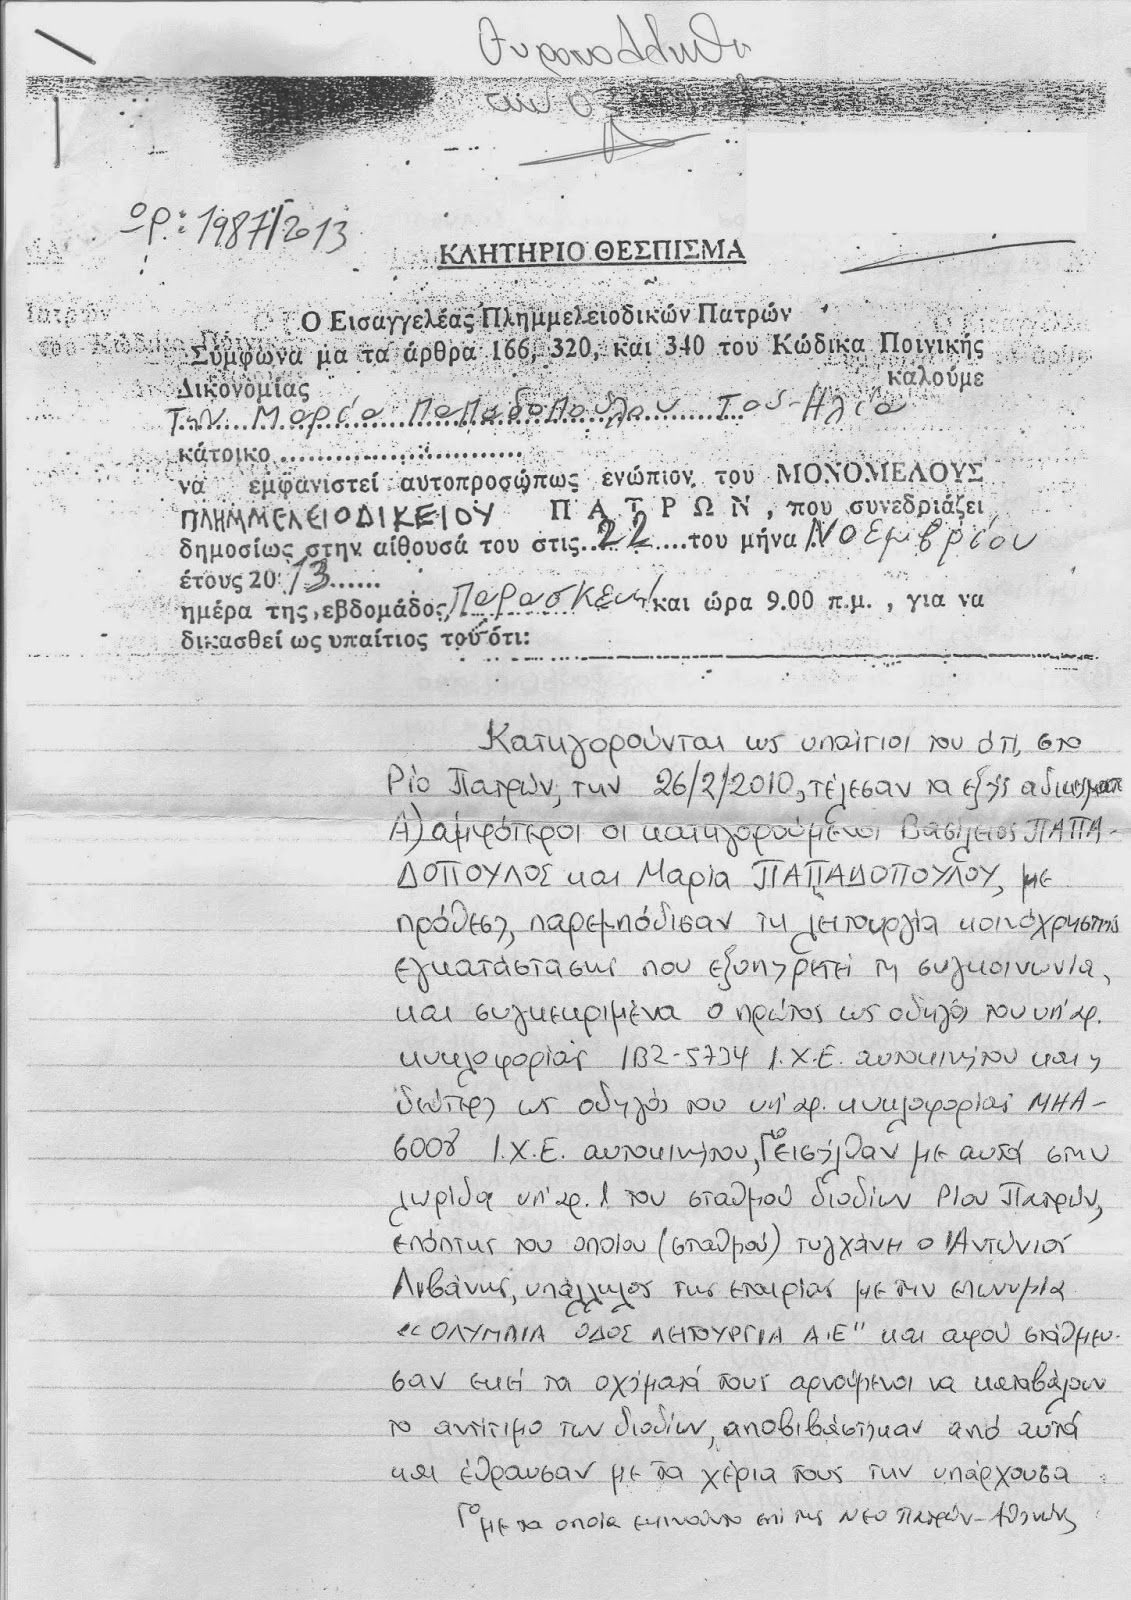 ΩΡ: 1987/2013
ΚΛΗΤΗΡΙΟ ΘΕΣΠΙΣΜΑ
Ο Εισαγγελέας Πλημμελειοδικών Πατρών
Σύμφωνα μα τα άρθρα 166, 320, και 340 του Κώδικα Ποινικής
Δικονομίας καλούμε
Την Μαρία Παπαδοπούλου Του Ηλία
κάτοικο ...........................
να εμφανιστεί αυτοπροσώπως ενώπιον του ΜΟΝΟΜΕΛΟΥΣ
ΠΛΗΜΜΕΛΕΙΟΔΙΚΕΙΟΥ Π Α Τ Ρ Ω Ν , που συνεδριάζει
δημοσίως στην αίθουσά του στις 22 του μήνα Νοεμβρίου
έτους 2013......
ημέρα της εβδομάδος Παρασκευή και ώρα 9.00 π.μ. , για να
δικασθεί ως υπαίτιος του ότι:
Κατηγορούνται ως υπαίτιοι του ότι, στο
Ρίο Πατρών, την 26/2/2010, τέλεσαν τα εξής αδικήματα
Α) αμφότεροι οι κατηγορούμενοι Βασίλειος ΠΑΠΑ-
ΔΟΠΟΥΛΟΣ και Μαρία ΠΑΠΑΔΟΠΟΥΛΟΥ, με
πρόθεση, παρεμπόδισαν τη λειτουργία κοινόχρηστης
εγκατάστασης που εξυπηρετεί τη συγκοινωνία,
και συγκεκριμένα ο πρώτος ως οδηγός του υπ' αρ.
κυκλοφορίας ΙΒΖ-5734 Ι.Χ.Ε. αυτοκινήτου και η
δεύτερη ως οδηγός του υπ' αρ. κυκλοφορίας ΜΗΑ-
6008 Ι.Χ.Ε. αυτοκινήτου, εισήλθαν με αυτά στην
λωρίδα υπ' αρ. 1 του σταθμού διοδίων Ρίου Πατρών,
επόπτης του οποίου (σταθμού) τυγχάνη ο Αντώνιος
Λιβάνης, υπάλληλος της εταιρίας με την επωνυμία
«ΟΛΥΜΠΙΑ ΟΔΟΣ ΛΕΙΤΟΥΡΓΙΑ Α.Ε" και αφού στάθμευ-
σαν εκεί τα οχήματά τους αρνούμενοι να καταβάλουν
το αντίτιμο των διοδίων, αποβιβάστηκαν από αυτά
και έθραυσαν με τα χέρια τους την υπάρχουσα
με τα οποία εκινούντο επί της ΝΕΟ Πατρών-Αθηνών,